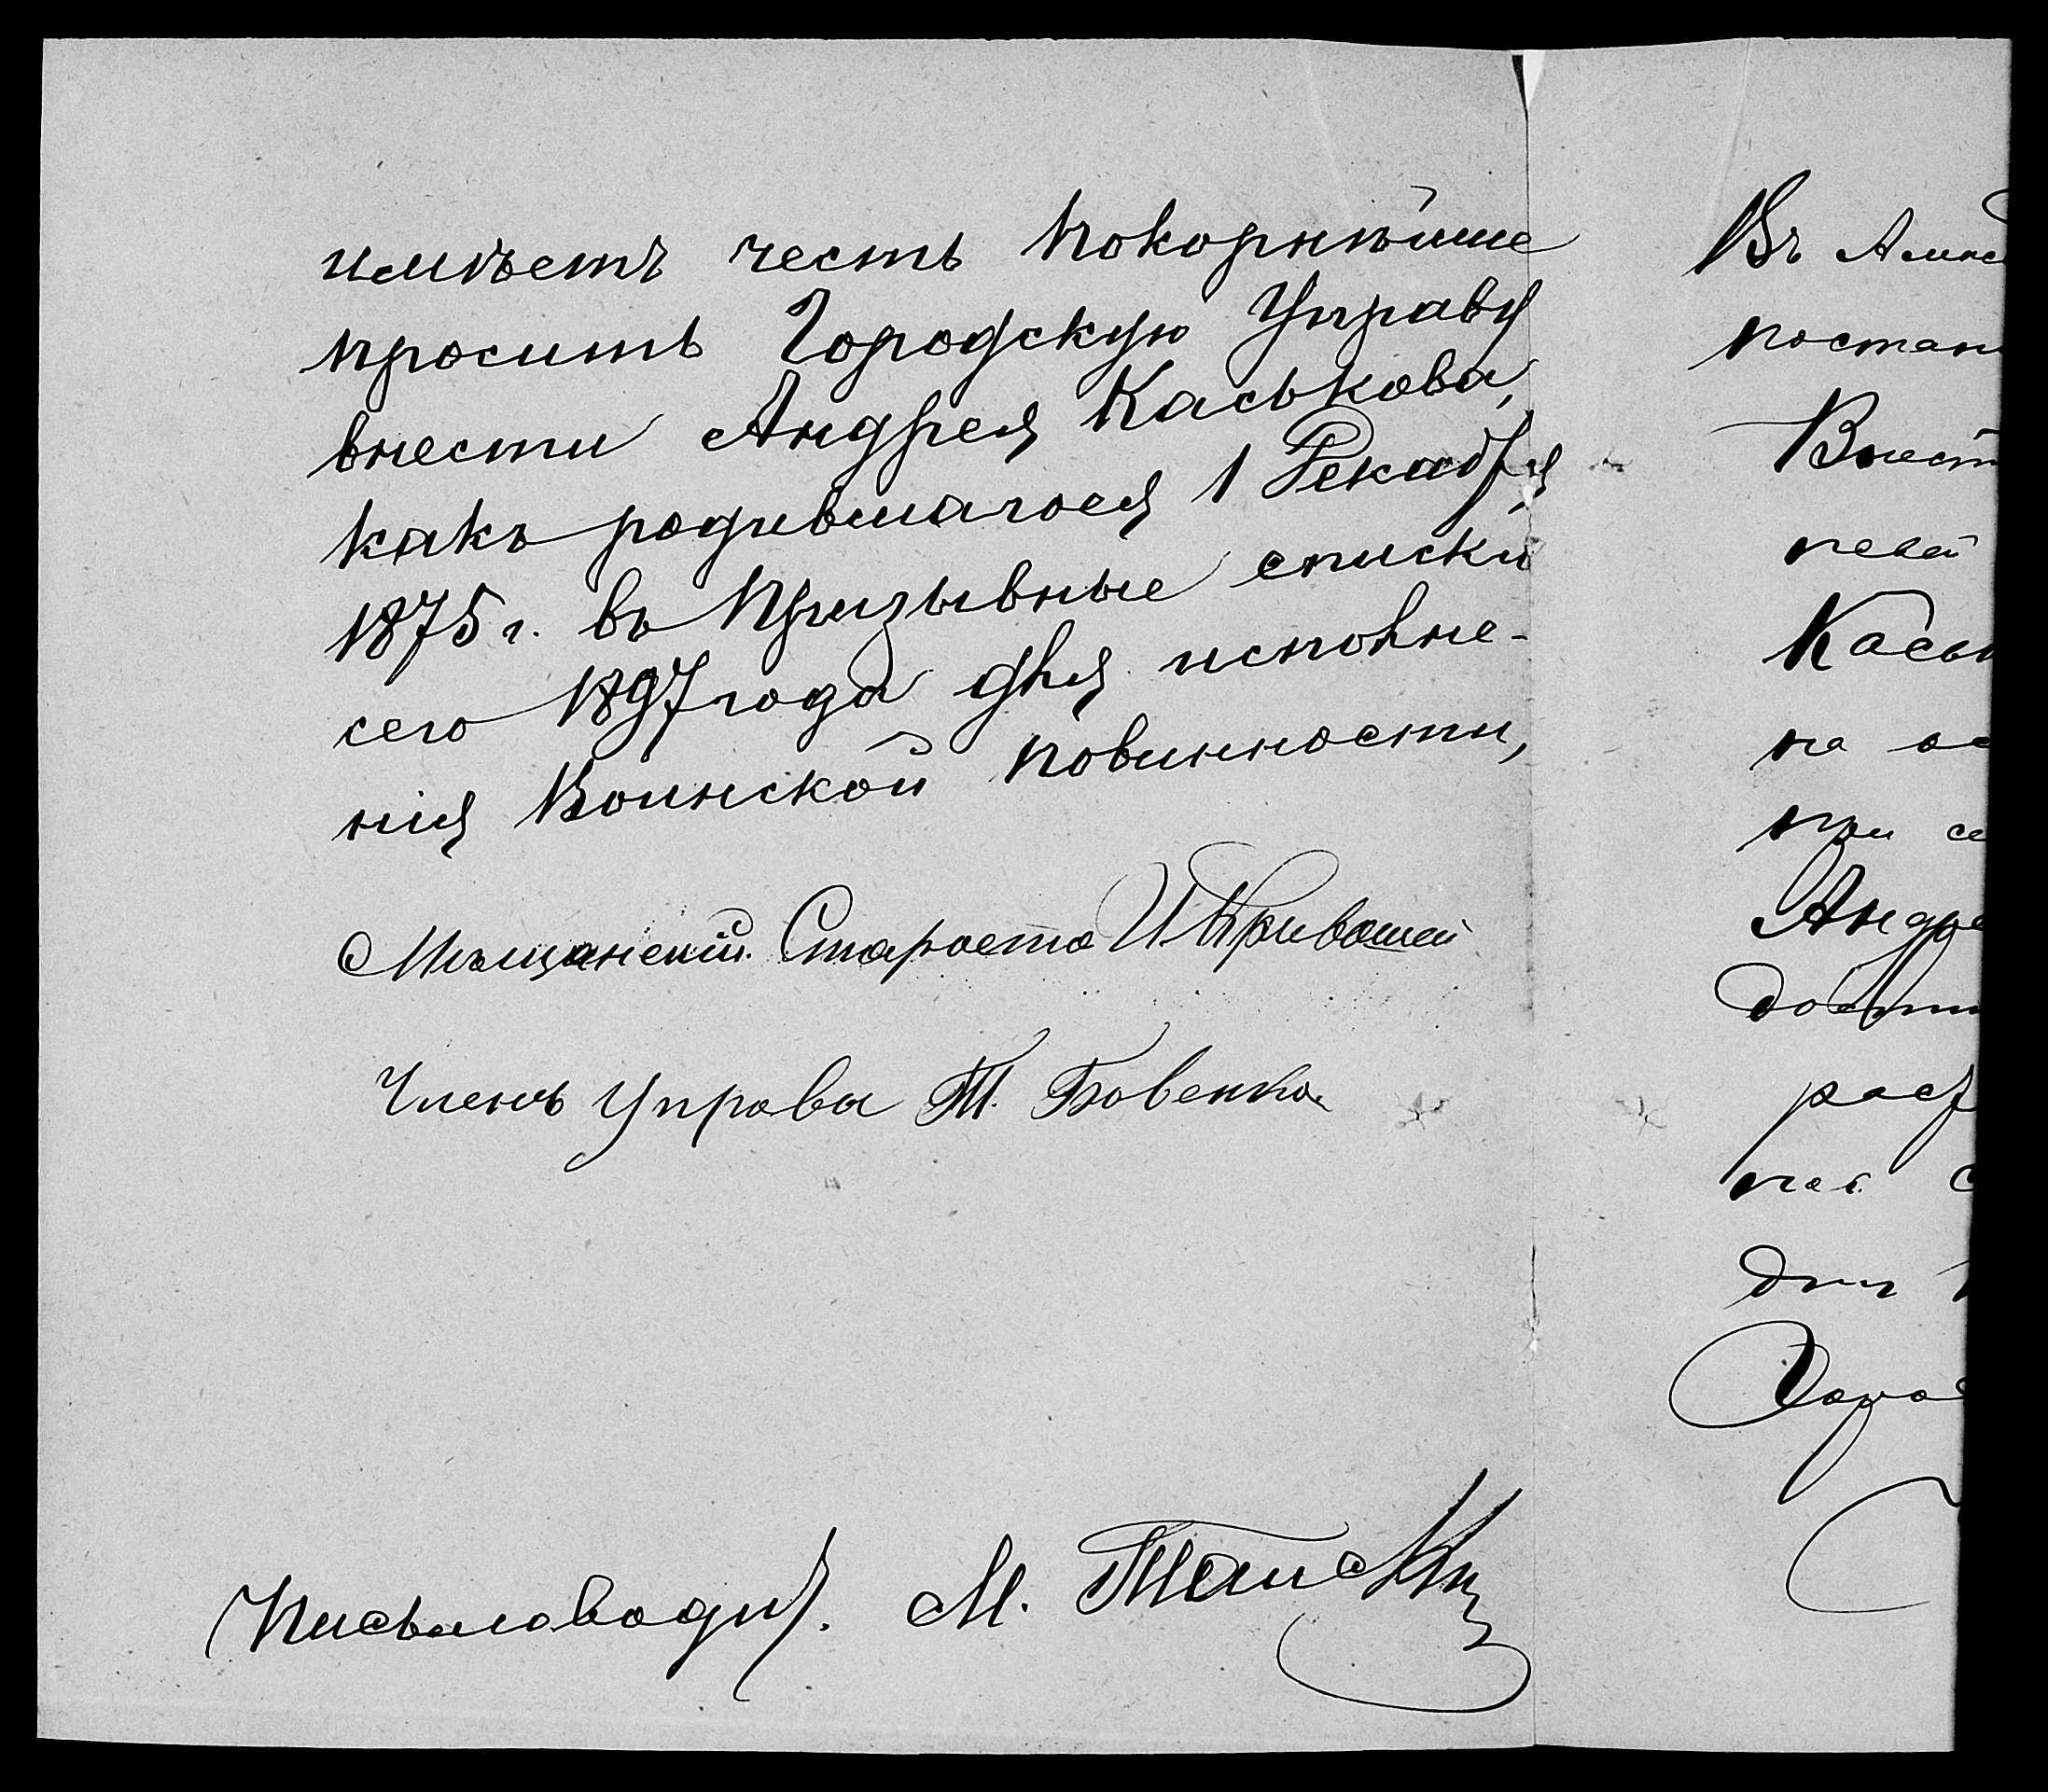 имѣетъ честь покорнѣйше
просить Городскую Управу
внести Андрея Каськова,
какъ родившагося 1 Декабря
1875 г. въ призывные списки
сего 1897 года для исполне-
нія Воинской повинности,
Мѣщанскій Староста И Кривошей
Членъ Управы Т. Бовенко
Письмоводит. М.
Въ
постан
Внест
Каськ
на ос
при се
Андре